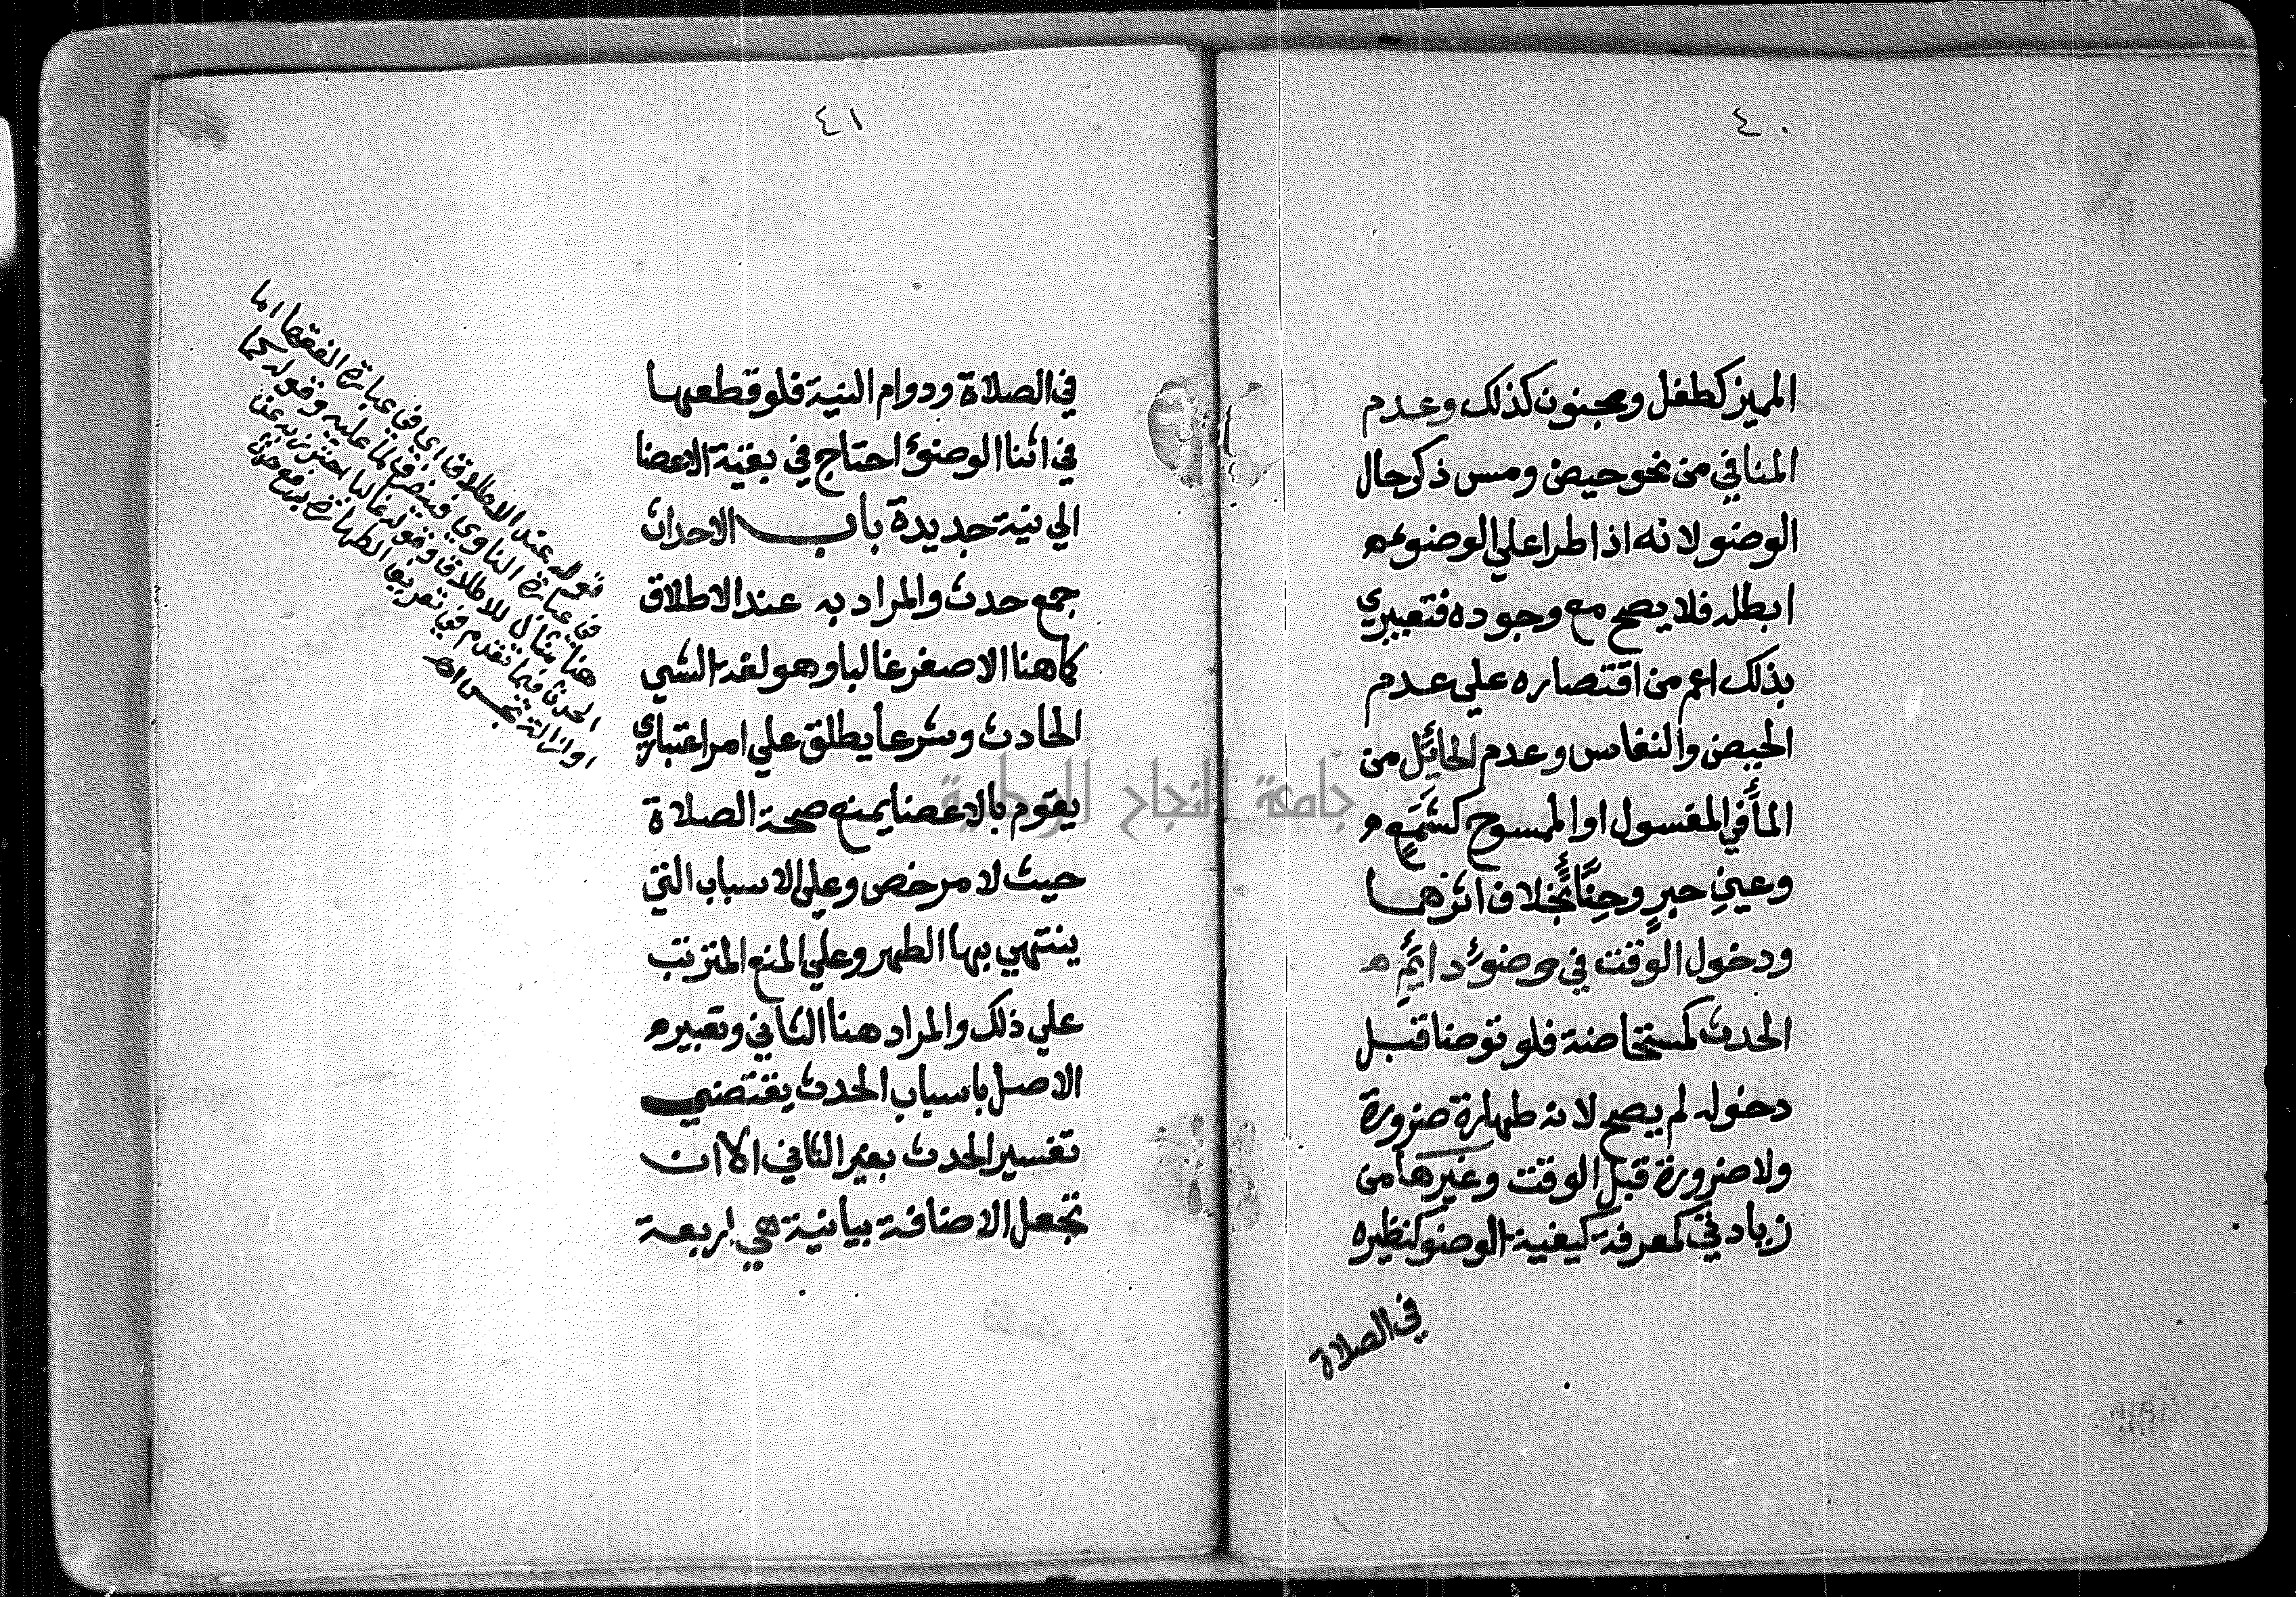 ٤٠
المميز كطفل ومجنون كذلك وعدم
المنافي من نحو حيض ومس ذكر حال
الوضو لانه اذا طرا علي الوضوء
ابطله فلا يصح مع وجوده فتعبيري
بذلك اعم من اقتصاره علي عدم
الحيض والنفاس وعدم الحائل من
المأ في المغسول او الممسوح كشمع
وعين حبر وحنا بخلاف اثرهما
ودخول الوقت في وضوء دائم
الحدث كمستحاضة فلو توضا قبل
دخوله لم يصح لانه طهارة ضرورة
ولا ضرورة قبل الوقت وغيرها من
زيادتي كمعرفة كيفية الوضو كنظيره
في الصلاة
٤١
في الصلاة ودوام النية فلو قطعها
في اثنا الوضوء احتاج في بقية الاعضا
الي نية جديدة باب الاحداث
جمع حدث والمراد به عند الاطلاق
كما هنا الاصغر غالبا وهو لغة الشي
الحادث وشرعا يطلق علي امر اعتباري
يقوم بالاعضا يمنع صحة الصلاة
حيث لا مرخص وعلي الاسباب التي
ينتهي بها الطهر وعلي المنع المترتب
علي ذلك والمراد هنا الثاني وتعبير
الاصل باسباب الحدث يقتضي
تفسير الحدث بغير الثاني الا ان
تجعل الاضافة بيانية هي اربعة
قوله عند الاطلاق اي في عبارة الفقها اما
في عبارة الناوي فينصرف لما عليه وقوله كما
هنا مثال للاطلاق وقوله غالبا احترز به عن
الحدث فيما تقدم في تعريف الطهارة برفع حدث
او ازالة نجس اه
جامعة النجاح الوطنية